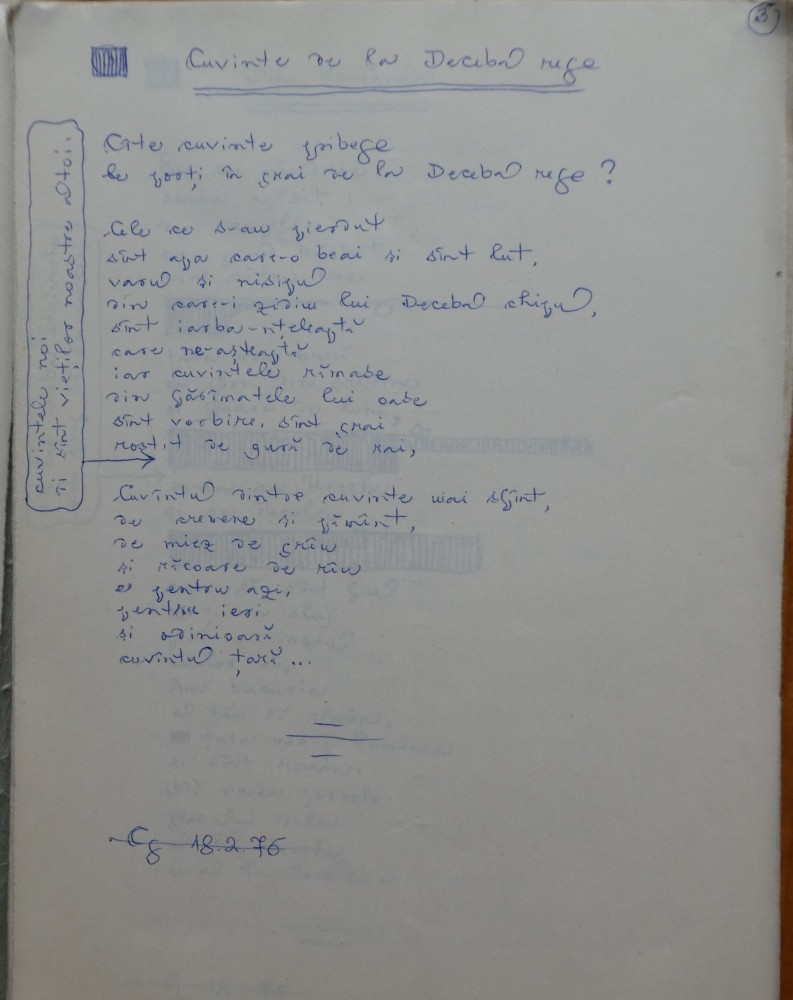 3
Cuvinte de la Decebal rege
Cîte cuvinte pribege
le porți în grai de la Decebal rege?
Cele ce s-au pierdut
sînt apa care-o beai și sînt lut,
varul și nisipul
din care-i zidim lui Decebal chipul,
sînt iarba-nțeleaptă
care ne-așteaptă
iar cuvintele rămase
din găsimatele lui oase
sînt vorbire, sînt grai
rostit de gură de rai,
cuvintele noi
sînt vieților noastre altoi.
Cuvîntul dintre cuvinte mai sfînt,
de cremene și pămînt,
de miez de grîu
și răcoare de rîu
e pentru azi,
pentru ieri
și odinioară
cuvîntul țară...
18.2.76